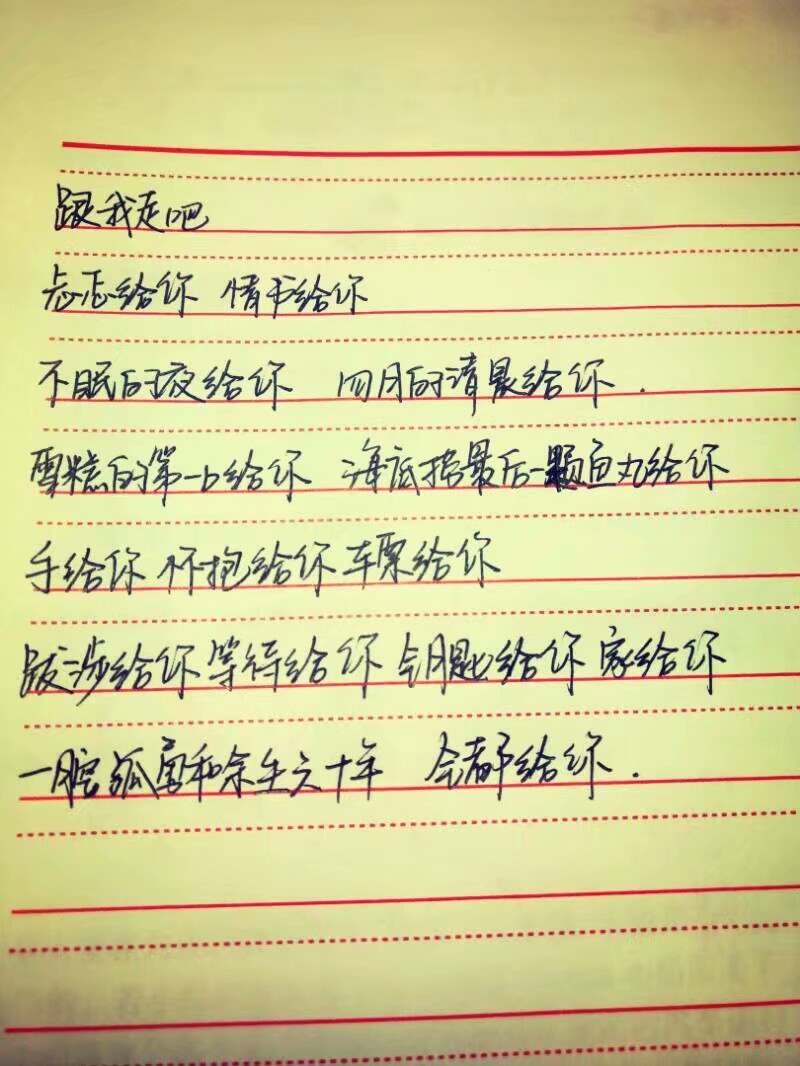 跟我走吧
忐忑给你 情书给你
不眠的夜给你 四月的清晨给你.
雪糕的第一口给你 海底捞最后一颗鱼丸给你
手给你 怀抱给你 车票给你
跋涉给你 等待给你 钥匙给你 家给你
一腔孤勇和余生六十年 全都给你.